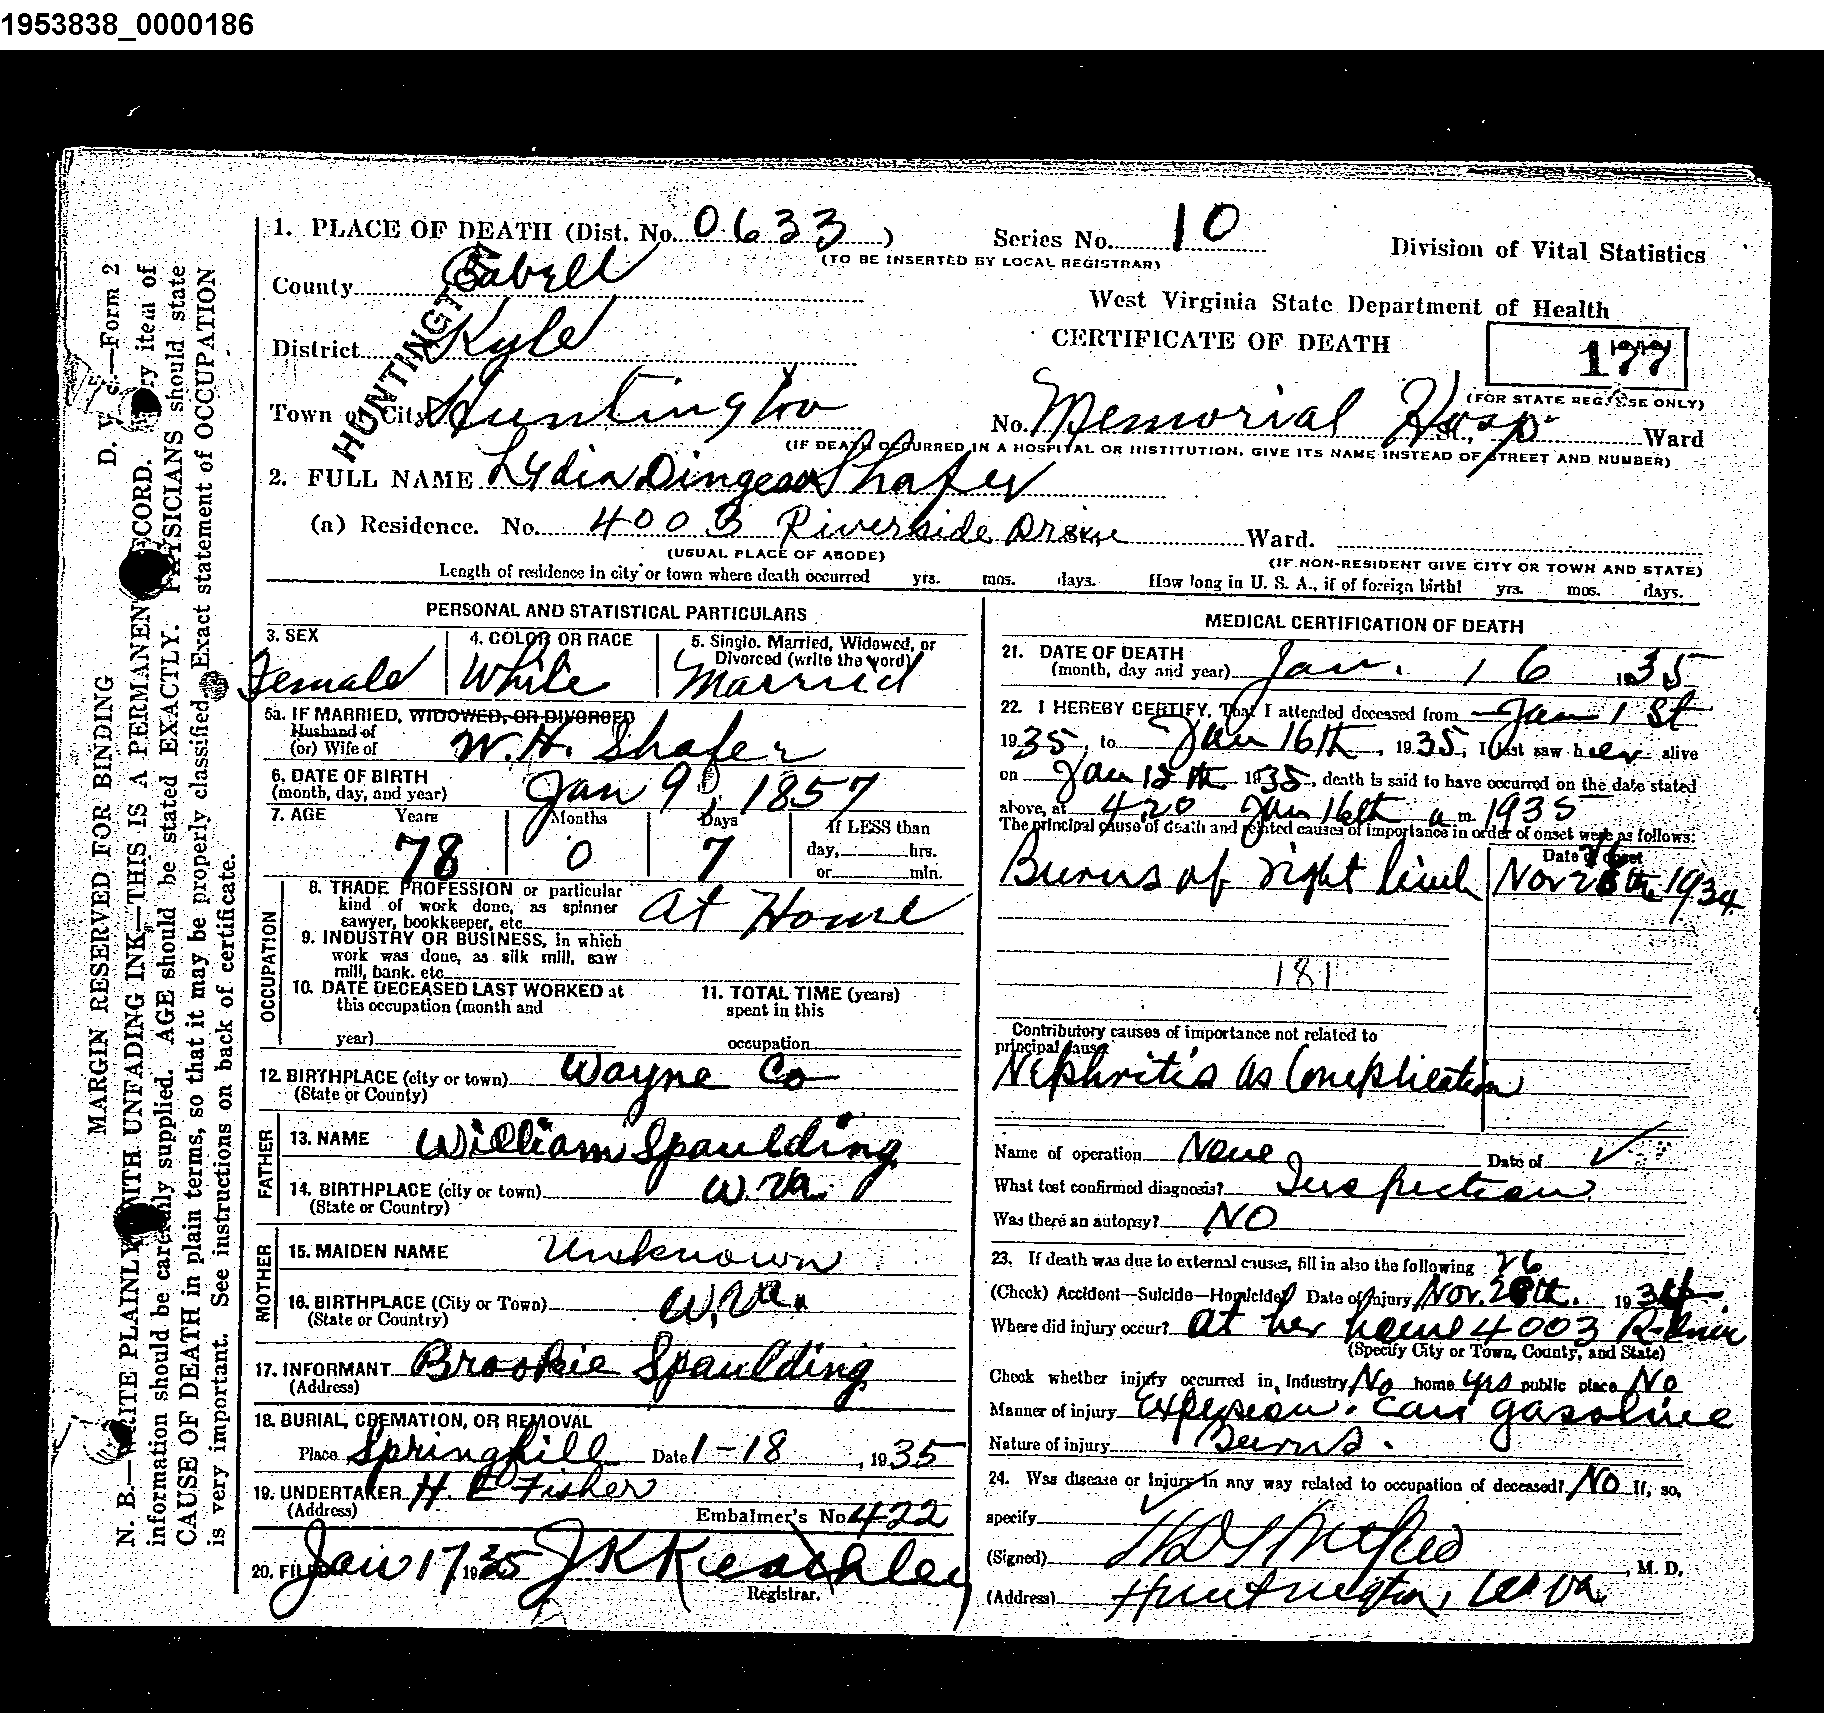 1953838_0000186
1. PLACE OF DEATH (Dist. No. 0633 ) Series No. 10 Division of Vital Statistics
(TO BE INSERTED BY LOCAL REGISTRAR)
County Cabell
West Virginia State Department of Health
HUNTINGTON
District Kyle CERTIFICATE OF DEATH 177
(FOR STATE REG. USE ONLY)
Town or City Huntington No. Memorial Hosp St., Ward
(IF DEATH OCCURRED IN A HOSPITAL OR INSTITUTION, GIVE ITS NAME INSTEAD OF STREET AND NUMBER)
2. FULL NAME Lydia Dingess Shafer
(a) Residence. No. 4003 Riverside Drive Ward.
(USUAL PLACE OF ABODE) (IF NON-RESIDENT GIVE CITY OR TOWN AND STATE)
Length of residence in city or town where death occurred yrs. mos. days. How long in U. S. A., if of foreign birth? yrs. mos. days.
PERSONAL AND STATISTICAL PARTICULARS
3. SEX 4. COLOR OR RACE 5. Single, Married, Widowed, or
Divorced (write the word)
Female White Married
5a. IF MARRIED, WIDOWED, OR DIVORCED
Husband of
(or) Wife of W. H. Shafer
6. DATE OF BIRTH
(month, day, and year) Jan 9, 1857
7. AGE Years Months Days If LESS than
78 0 7 day, hrs.
or min.
OCCUPATION
8. TRADE PROFESSION or particular
kind of work done, as spinner
sawyer, bookkeeper, etc. At Home
9. INDUSTRY OR BUSINESS, in which
work was done, as silk mill, saw
mill, bank. etc.
10. DATE DECEASED LAST WORKED at
this occupation (month and
year)
11. TOTAL TIME (years)
spent in this
occupation
12. BIRTHPLACE (city or town) Wayne Co
(State or County)
FATHER
13. NAME William Spaulding
14. BIRTHPLACE (city or town) W. Va.
(State or Country)
MOTHER
15. MAIDEN NAME Unknown
16. BIRTHPLACE (City or Town) W. Va.
(State or Country)
17. INFORMANT Brookie Spaulding
(Address)
18. BURIAL, CREMATION, OR REMOVAL
Place Springhill Date 1-18, 1935
19. UNDERTAKER H. E Fisher
(Address) Embalmer's No 422
20. FILED Jan 17 1935 J K Keathley
Registrar.
MEDICAL CERTIFICATION OF DEATH
21. DATE OF DEATH
(month, day and year) Jan. 16 1935
22. I HEREBY CERTIFY, That I attended deceased from Jan 1st
1935, to Jan 16th, 1935, I last saw her alive
on Jan 15th 1935, death is said to have occurred on the date stated
above, at 4:20 Jan 16th a m. 1935
The principal cause of death and related causes of importance in order of onset were as follows:
Date of onset
Burns of right limb Nov 26th 1934
181
Contributory causes of importance not related to
principal cause:
Nephritis as Complication
Name of operation None Date of
What test confirmed diagnosis? Inspection
Was there an autopsy? NO
23. If death was due to external causes, fill in also the following 26
(Check) Accident—Suicide—Homicide? Date of injury Nov. 26th. 1934
Where did injury occur? At her home 4003 R-Drive
(Specify City or Town, County, and State)
Check whether injury occurred in, Industry No home yes public place No
Manner of injury Explosion. Can gasoline
Nature of injury Burns.
24. Was disease or injury in any way related to occupation of deceased? No If, so,
specify
(Signed) , M. D.
(Address) Huntington, W Va.
D. V. S.—Form 2
MARGIN RESERVED FOR BINDING
N. B.—WRITE PLAINLY WITH UNFADING INK—THIS IS A PERMANENT RECORD. Every item of
information should be carefully supplied. AGE should be stated EXACTLY. PHYSICIANS should state
CAUSE OF DEATH in plain terms, so that it may be properly classified. Exact statement of OCCUPATION
is very important. See instructions on back of certificate.